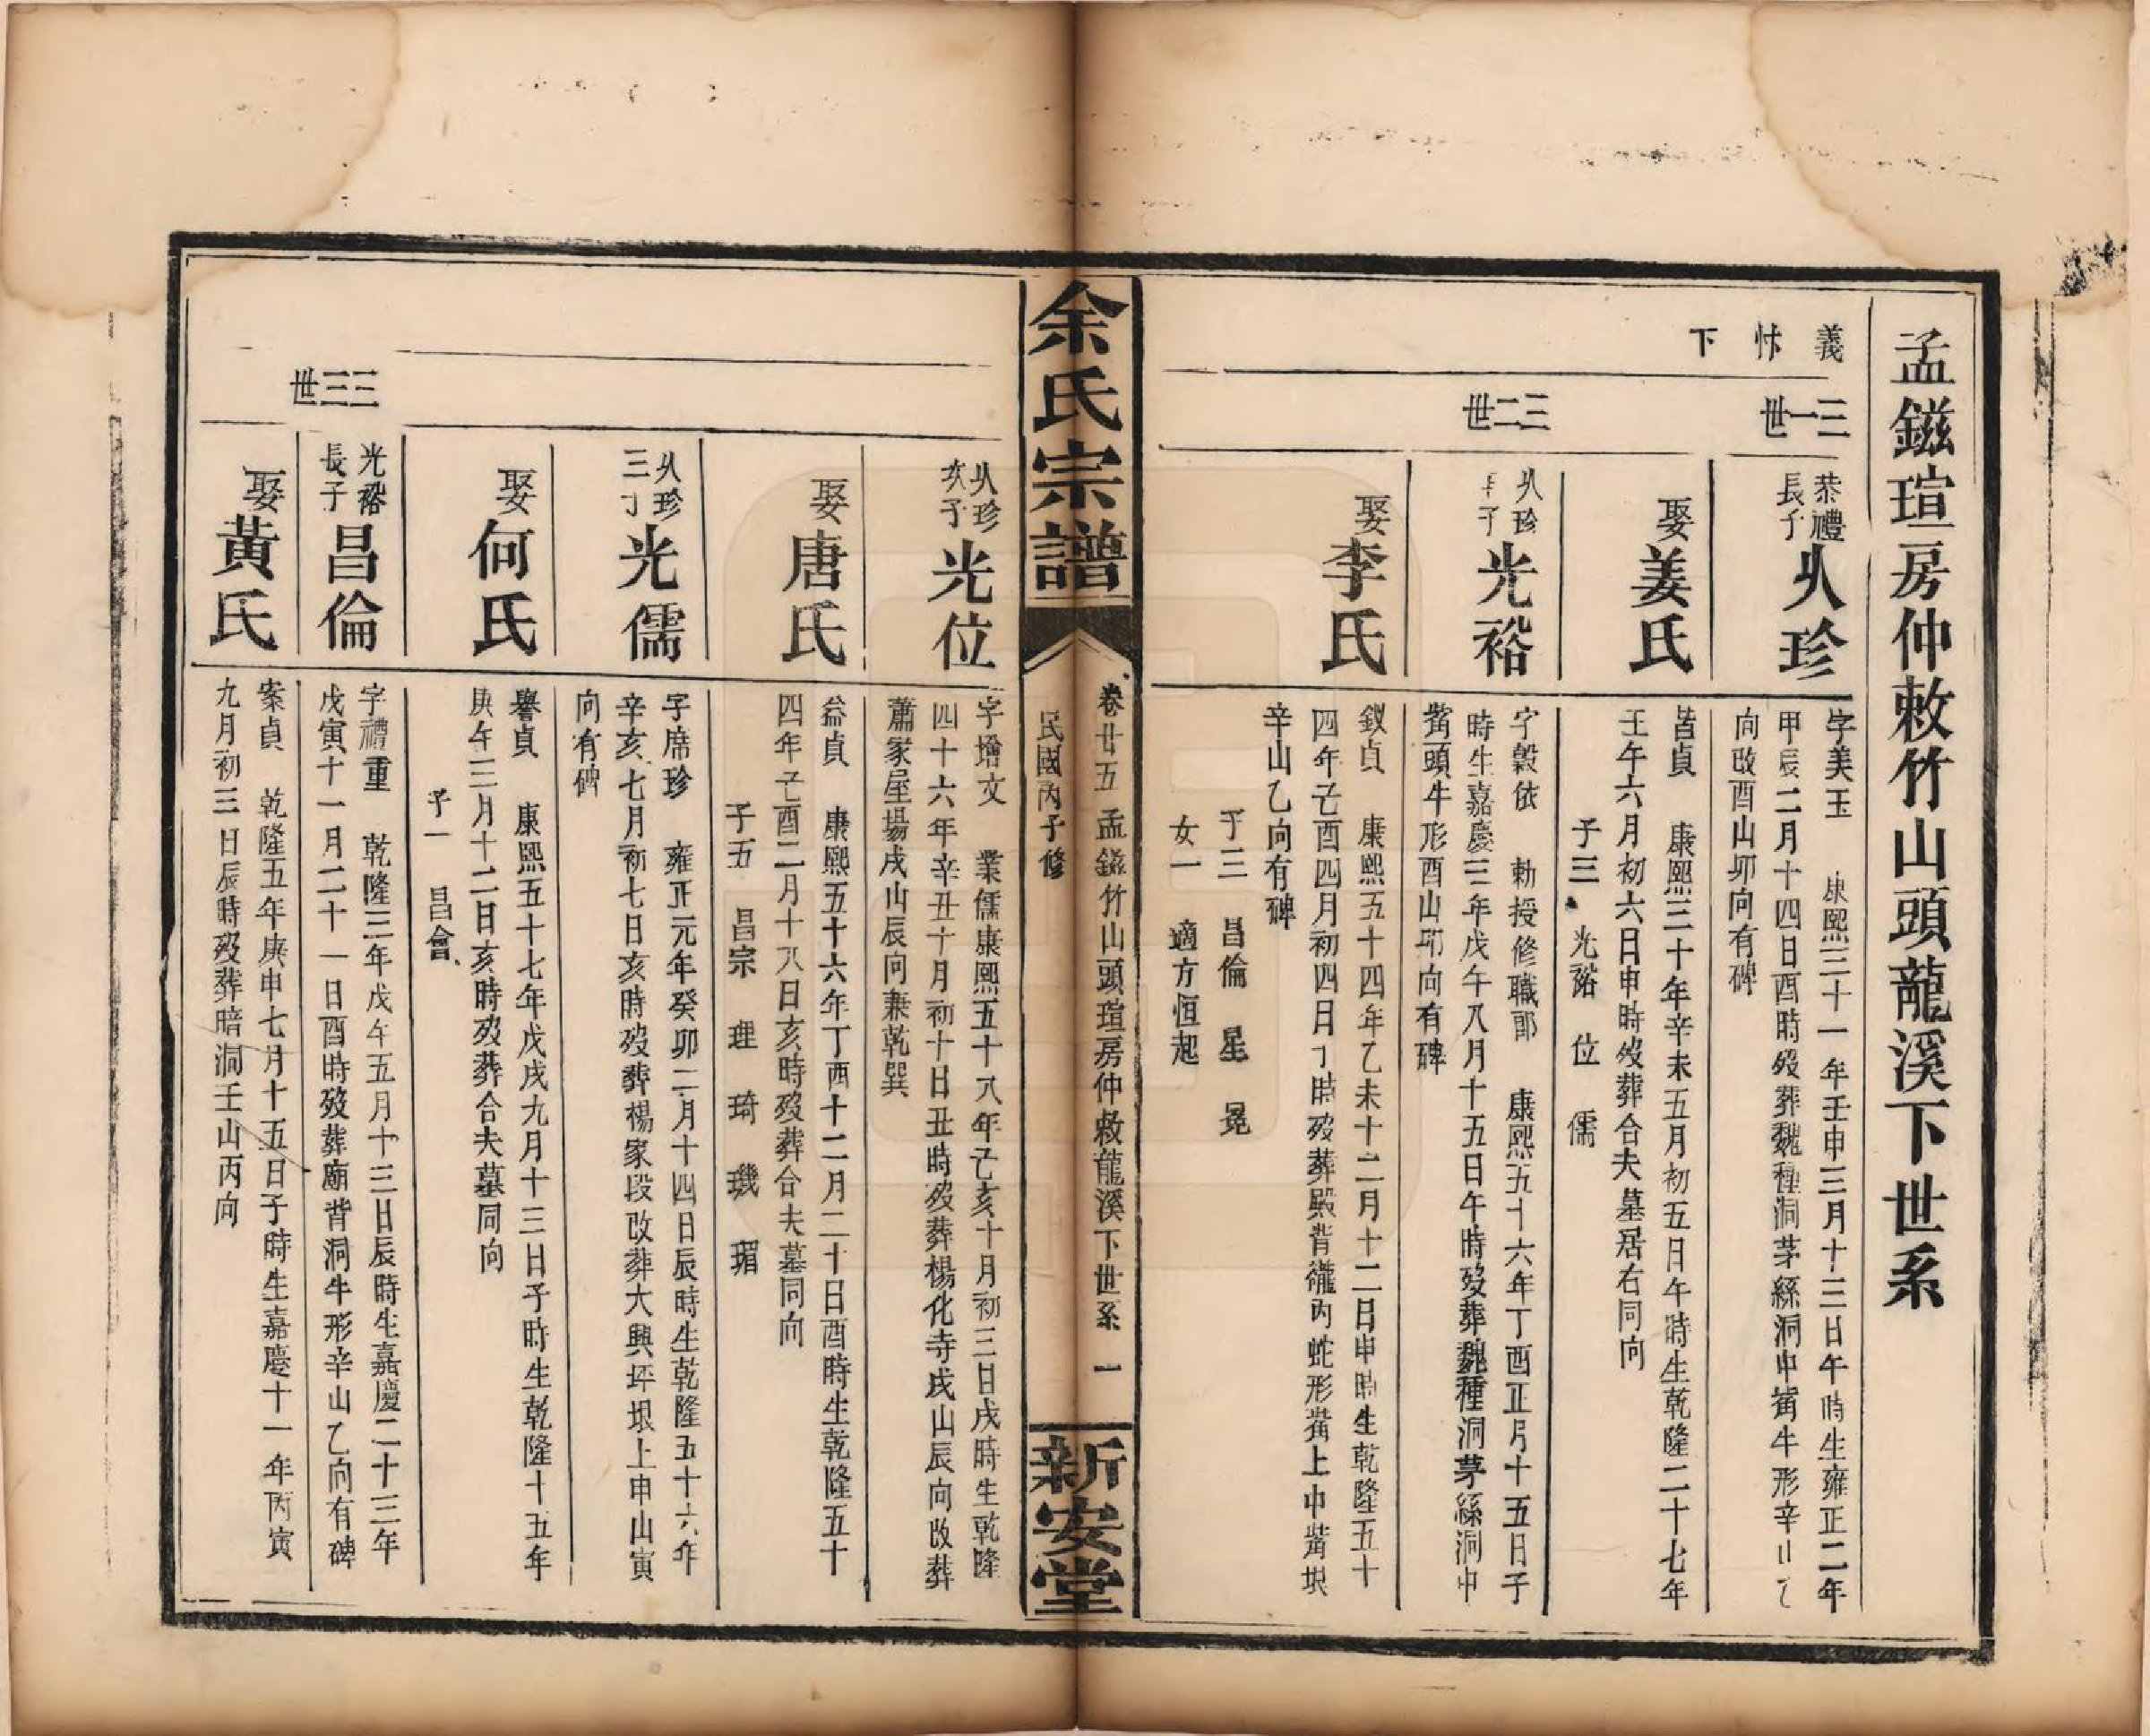 孟鎡瑄房仲敕竹山頭龍溪下世系
義
怵
下
三一世
恭禮
長子
火珍
字美玉 康熙三十一年壬申三月十三日午時生雍正二年
甲辰二月十四日酉時歿葬魏種洞茅絲洞中觜牛形辛山乙
向改酉山卯向有碑
娶
姜氏
皆貞 康熙三十年辛未五月初五日午時生乾隆二十七年
壬午六月初六日申時歿葬合夫墓居右同向
子三 光裕 位 儒
三二世
火珍
長子
光裕
字縠依 勅授修職郎 康熙五十六年丁酉正月十五日子
時生嘉慶三年戊午八月十五日午時歿葬魏種洞茅絲洞中
觜頭牛形酉山卯向有碑
娶
李氏
釵貞 康熙五十四年乙未十二月十二日申時生乾隆五十
四年己酉四月初四日丁時歿葬殿背衖內蛇形觜上中觜垠
辛山乙向有碑
子三 昌倫 星 冕
女一 適方恒起
余氏宗譜
卷廿五 孟鎡竹山頭瑄房仲敕龍溪下世系 一
民國丙子修
新安堂
火珍
次子
光位
字增文 業儒康熙五十八年己亥十月初三日戌時生乾隆
四十六年辛丑十月初十日丑時歿葬楊化寺戌山辰向改葬
蕭家屋場戌山辰向兼乾巽
娶
唐氏
益貞 康熙五十六年丁酉十二月二十日酉時生乾隆五十
四年己酉二月十八日亥時歿葬合夫墓同向
子五 昌宗 理 琦 璣 瑂
火珍
三子
光儒
字席珍 雍正元年癸卯二月十四日辰時生乾隆五十六年
辛亥七月初七日亥時歿葬楊家段改葬大興坪垠上申山寅
向有碑
娶
何氏
譽貞 康熙五十七年戊戌九月十三日子時生乾隆十五年
庚午三月十二日亥時歿葬合夫墓同向
子一 昌會
三三世
光裕
長子
昌倫
字禮重 乾隆三年戊午五月十三日辰時生嘉慶二十三年
戊寅十一月二十一日酉時歿葬廟背洞牛形辛山乙向有碑
娶
黃氏
案貞 乾隆五年庚申七月十五日子時生嘉慶十一年丙寅
九月初三日辰時歿葬暗洞壬山丙向